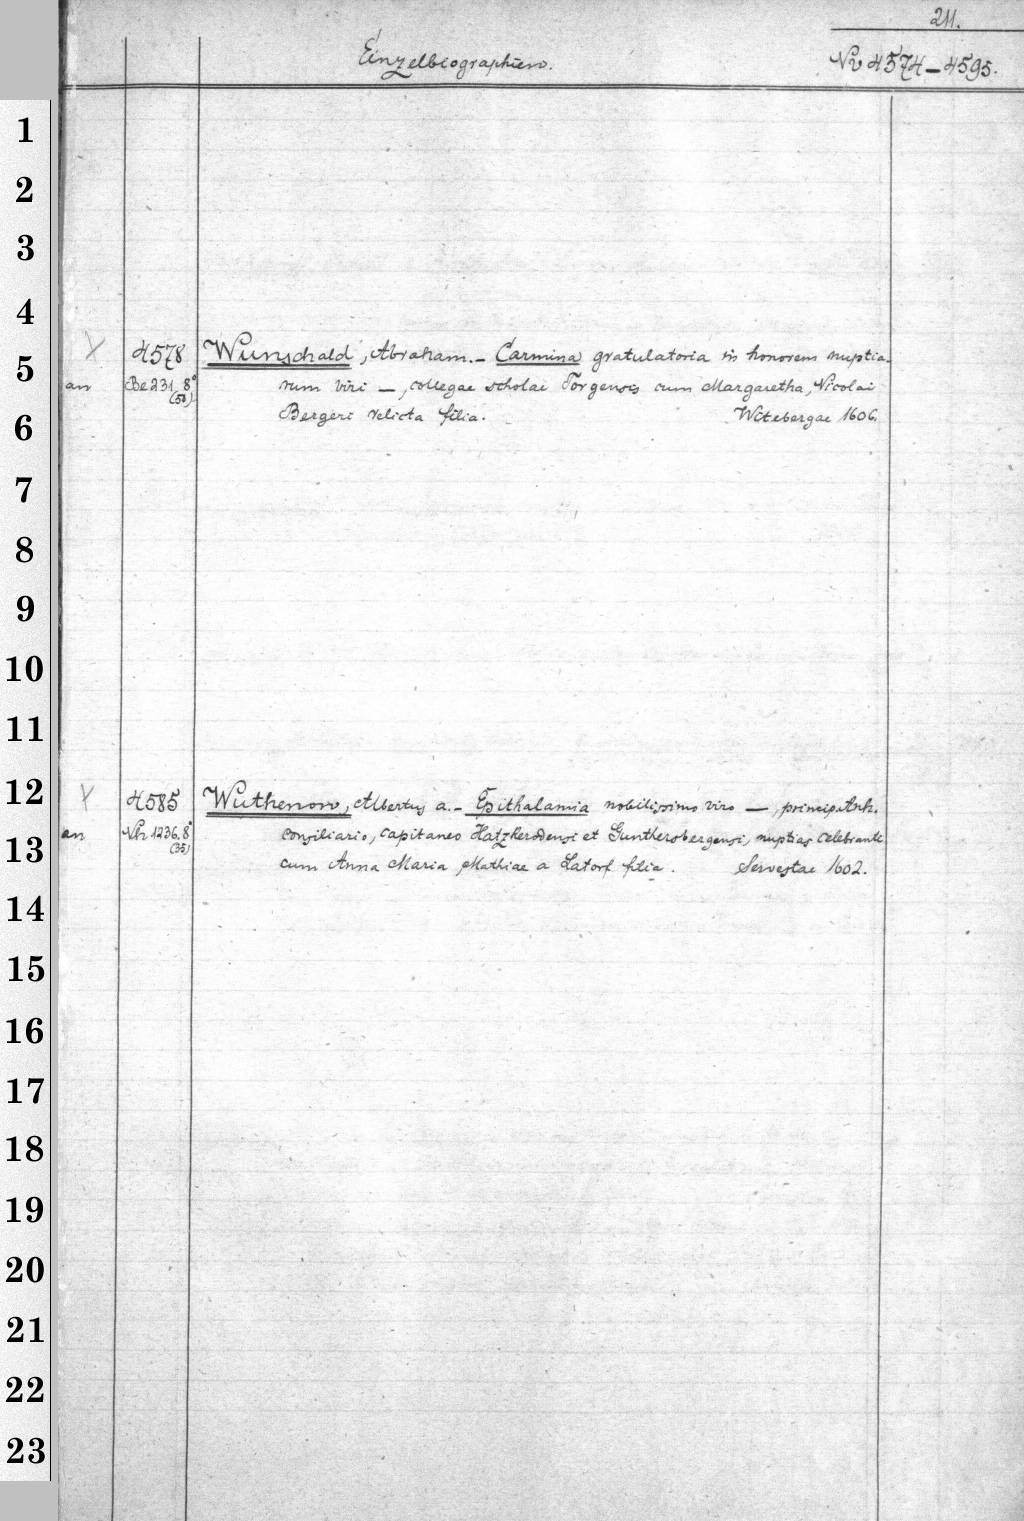 211.
Einzelbiographien.
Nr 4574-4595.
1
2
3
4
5
6
7
8
9
10
11
12
13
14
15
16
17
18
19
20
21
22
23
X 4578 Wunschald, Abraham. - Carmina gratulatoria in honorem nuptia-
an Be 231, 8° rum viri —, collegae scholae Torgensis cum Margaretha, Nicolai
Bergeri relicta filia. Witebergae 1606.
X 4585 Wuthenow, Albertus a. - Epithalamia nobilissimo viro —, princip. Anh.
an 1236. 8° consiliario, capitaneo Hatzkerodensi et Gunthersbergensi, nuptias celebrante
(35)
cum Anna Maria Mathiae a Latorf filia. Servestae 1602.